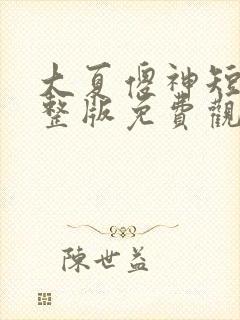 大夏傻神短
整版免費觀
陳世益